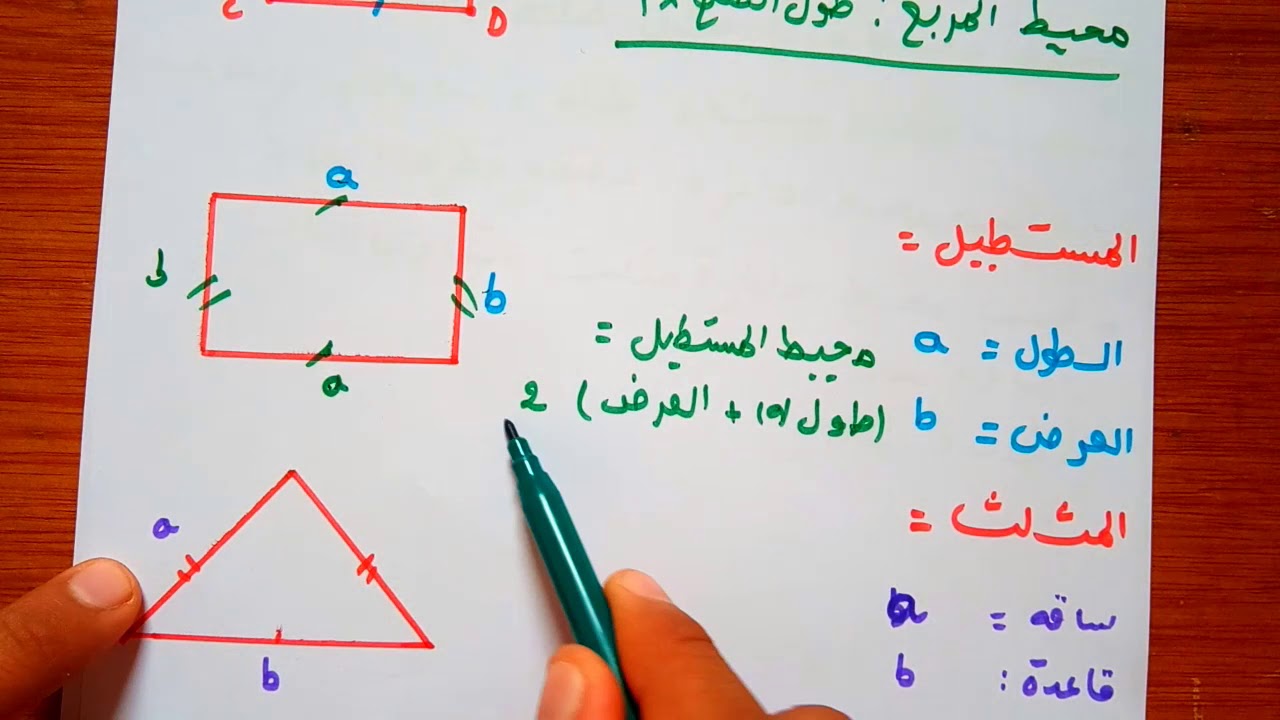 C D
محيط المربع : طول الضلع ×
a
b b
a
المستطيل =
الطول = a
العرض = b
محيط المستطيل =
(طول (a) + العرض) 2
المثلث =
a
b
ساقه = a
قاعدة : b